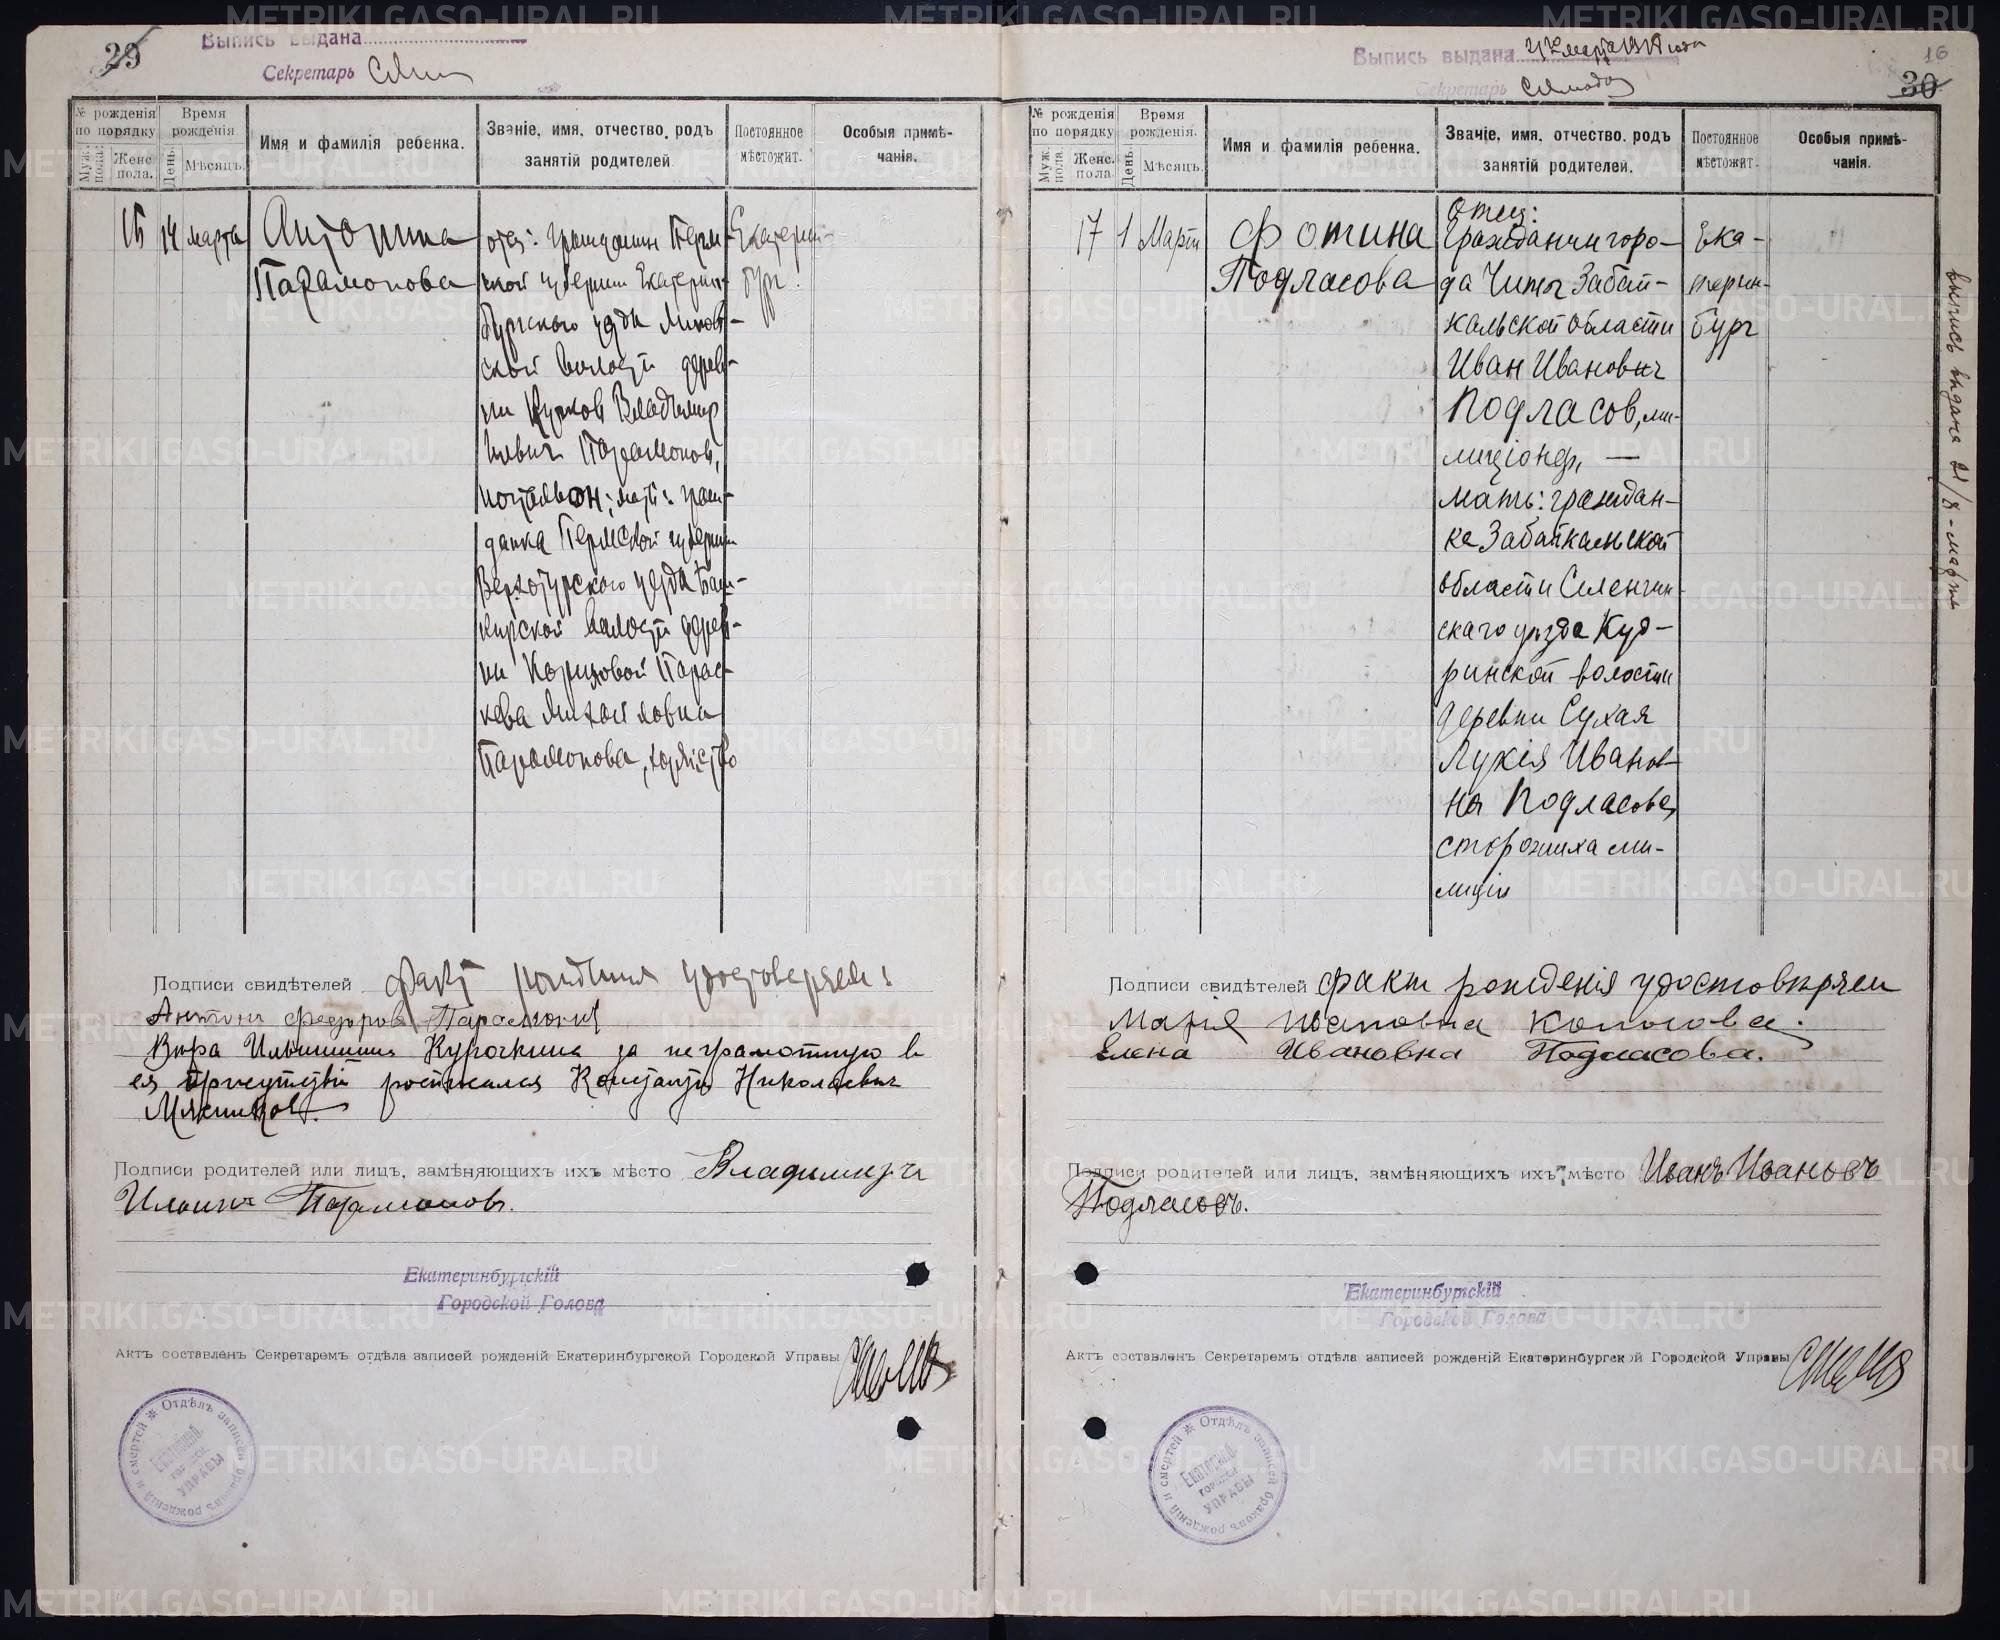 29
Выпись выдана
Секретарь
№ рожденія по порядку
Муж. пола.
Женс. пола.
Время рожденія
День.
Мѣсяцъ.
Имя и фамилія ребенка.
Званіе, имя, отчество, родъ занятій родителей.
Постоянное мѣстожит.
Особыя примѣчанія.
14 марта
Антонина
Парамонова
отец: гражданин Перм-
ской губернии Екатерин-
бургского уезда
ской волости дерев-
ни Владимир
Парамонов,
почтальон; мать: граж-
данка Пермской губернии
Верхотурского уезда Баш-
кирской волости дерев-
ни Парас-
кева Михайловна
Парамонова, хозяйство
Екатерин-
бург.
Подписи свидѣтелей факт рождения удостоверяем:
Антон Федоров Парамонов
Вѣра Ильинишна Курочкина за неграмотную в
ея присутствіи росписался Константин Николаевич
Мясников
Подписи родителей или лицъ, замѣняющихъ ихъ мѣсто Владимиръ
Ильичъ Парамоновъ.
Екатеринбургскій
Городской Голова
Актъ составленъ Секретаремъ отдѣла записей рожденій Екатеринбургской Городской Управы
Отдѣлъ записей браковъ рожденій и смертей
Екатеринб.
городск.
УПРАВЫ
16
30
Выпись выдана
Секретарь
№ рожденія по порядку
Муж. пола.
Женс. пола
Время рожденія.
День.
Мѣсяцъ.
Имя и фамилія ребенка.
Званіе, имя, отчество, родъ занятій родителей.
Постоянное мѣстожит.
Особыя примѣчанія.
17 1 Марта
Фотина
Подласова
Отец:
Гражданин горо-
да Читы Забай-
кальской области
Иван Иванович
Подласов, ми-
лиціонер, —
мать: граждан-
ка Забайкальской
области Селенгин-
скаго уезда Куд-
ринской волости
деревни Сухая
Лукія Иванов-
на Подласова,
сторожиха ми-
лиціи
Ека-
терин-
бург
выпись выдана 21/8 - марта
Подписи свидѣтелей факт рожденія удостовѣряем
Марія Ивановна
Елена Ивановна Подласова.
Подписи родителей или лицъ, замѣняющихъ ихъ мѣсто Иванъ Ивановъ
Подласовъ.
Екатеринбургскій
Городской Голова
Актъ составленъ Секретаремъ отдѣла записей рожденій Екатеринбургской Городской Управы
Отдѣлъ записей браковъ рожденій и смертей
Екатеринб.
городск.
УПРАВЫ
METRIKI.GASO-URAL.RU